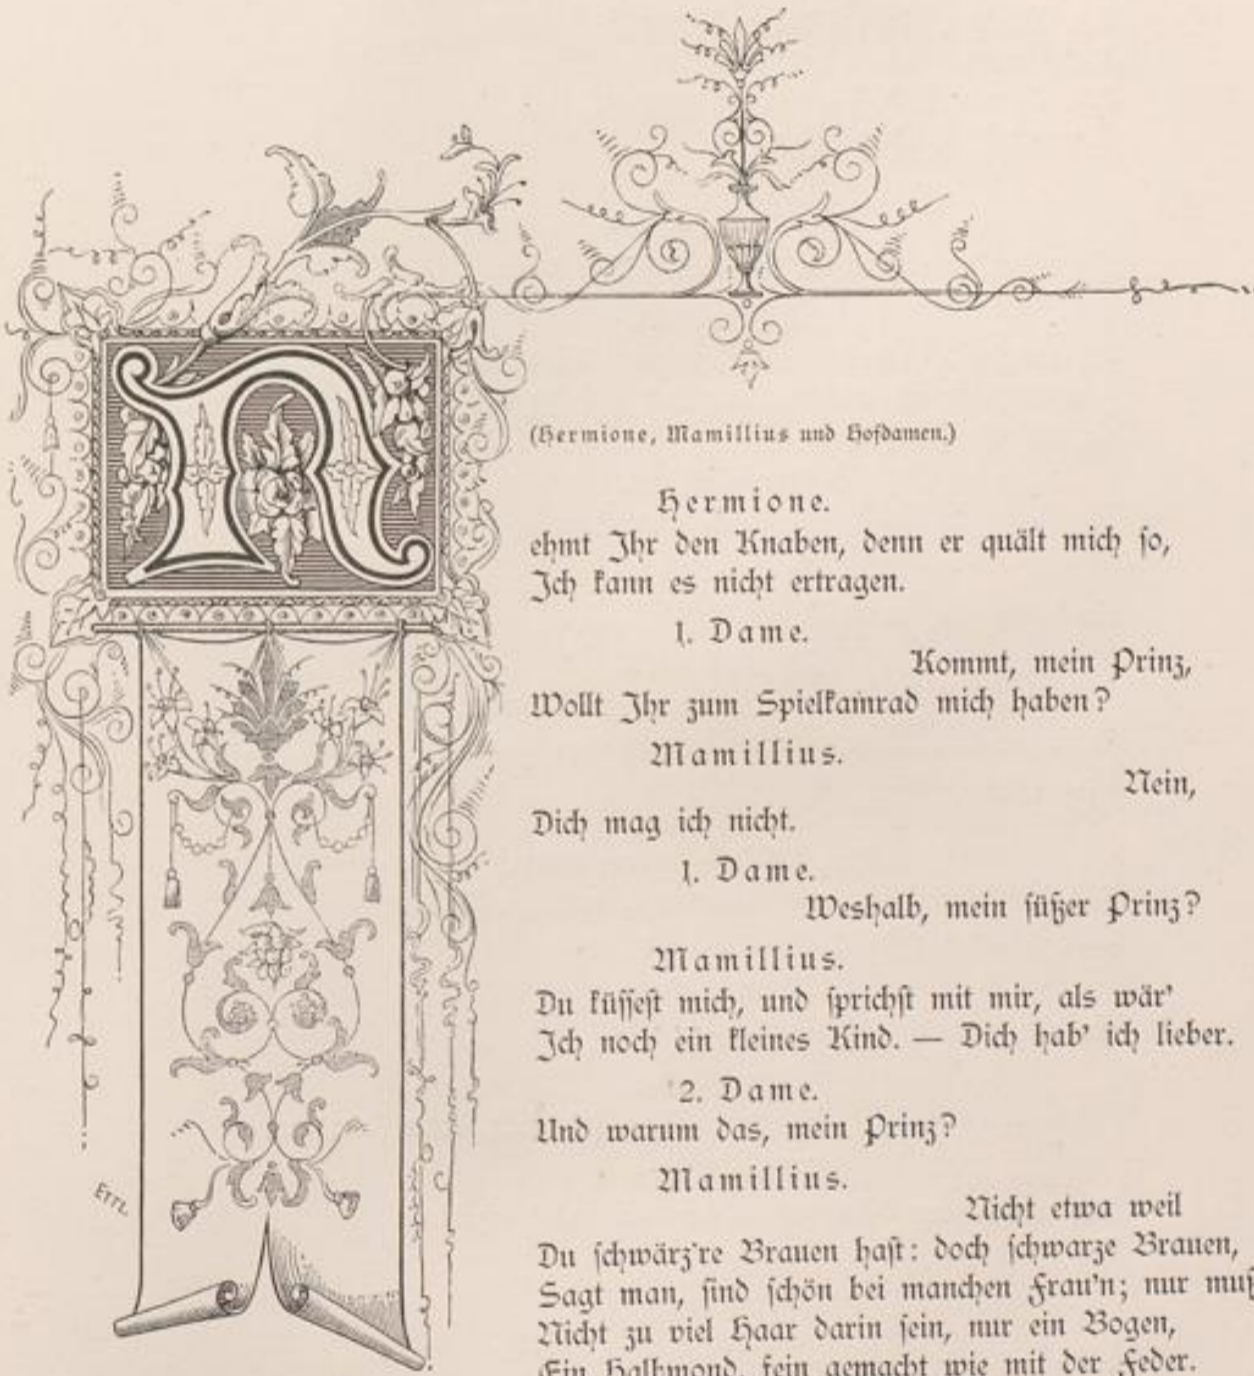 (Hermione, Mamillius und Hofdamen.)
Hermione.
Nehmt Ihr den Knaben, denn er quält mich so,
Ich kann es nicht ertragen.
1. Dame.
Kommt, mein Prinz,
Wollt Ihr zum Spielkamrad mich haben?
Mamillius.
Nein,
Dich mag ich nicht.
1. Dame.
Weshalb, mein süßer Prinz?
Mamillius.
Du küssest mich, und sprichst mit mir, als wär'
Ich noch ein kleines Kind. — Dich hab' ich lieber.
2. Dame.
Und warum das, mein Prinz?
Mamillius.
Nicht etwa weil
Du schwärz're Brauen hast: doch schwarze Brauen,
Sagt man, sind schön bei manchen Frau'n; nur muß
Nicht zu viel Haar darin sein, nur ein Bogen,
Ein Halbmond, fein gemacht wie mit der Feder.
ETTL.